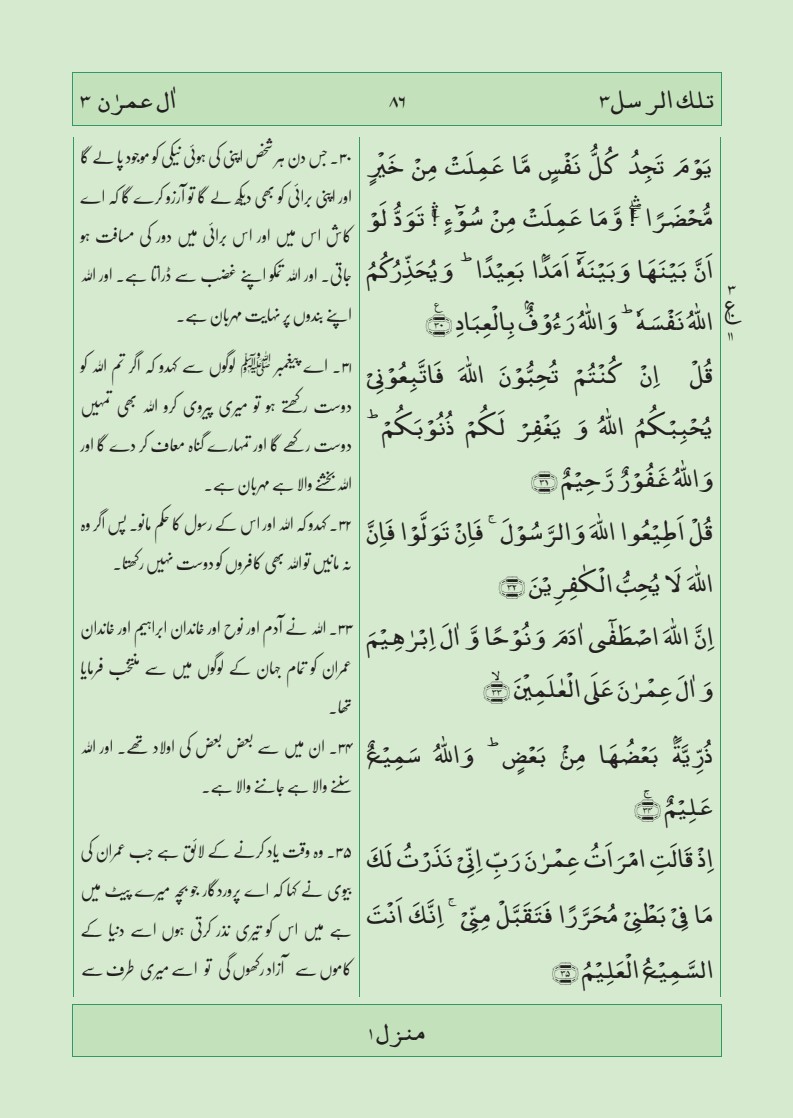 تلك الرسل ٣
٨٦
اٰل عمرٰن ٣
يَوْمَ تَجِدُ كُلُّ نَفْسٍ مَّا عَمِلَتْ مِنْ خَيْرٍ
مُّحْضَرًا ۛۖۚ وَّمَا عَمِلَتْ مِنْ سُوْٓءٍ ۛۚ تَوَدُّ لَوْ
اَنَّ بَيْنَهَا وَبَيْنَهٗٓ اَمَدًۢا بَعِيْدًا ؕ وَيُحَذِّرُكُمُ
اللّٰهُ نَفْسَهٗ ؕ وَاللّٰهُ رَءُوْفٌۢ بِالْعِبَادِ ﴿۳۰﴾ ع
٣
ع
١١
قُلْ اِنْ كُنْتُمْ تُحِبُّوْنَ اللّٰهَ فَاتَّبِعُوْنِيْ
يُحْبِبْكُمُ اللّٰهُ وَ يَغْفِرْ لَكُمْ ذُنُوْبَكُمْ ؕ
وَاللّٰهُ غَفُوْرٌ رَّحِيْمٌ ﴿۳۱﴾
قُلْ اَطِيْعُوا اللّٰهَ وَالرَّسُوْلَ ۚ فَاِنْ تَوَلَّوْا فَاِنَّ
اللّٰهَ لَا يُحِبُّ الْكٰفِرِيْنَ ﴿۳۲﴾
اِنَّ اللّٰهَ اصْطَفٰٓى اٰدَمَ وَنُوْحًا وَّ اٰلَ اِبْرٰهِيْمَ
وَ اٰلَ عِمْرٰنَ عَلَى الْعٰلَمِيْنَ ۙ﴿۳۳﴾
ذُرِّيَّةًۢ بَعْضُهَا مِنْۢ بَعْضٍ ؕ وَاللّٰهُ سَمِيْعٌ
عَلِيْمٌ ۚ﴿۳۴﴾
اِذْ قَالَتِ امْرَاَتُ عِمْرٰنَ رَبِّ اِنِّيْ نَذَرْتُ لَكَ
مَا فِيْ بَطْنِيْ مُحَرَّرًا فَتَقَبَّلْ مِنِّيْ ۚ اِنَّكَ اَنْتَ
السَّمِيْعُ الْعَلِيْمُ ﴿۳۵﴾
۳۰۔ جس دن ہر شخص اپنی کی ہوئی نیکی کو موجود پا لے گا
اور اپنی برائی کو بھی دیکھ لے گا تو آرزو کرے گا کہ اے
کاش اس میں اور اس برائی میں دور کی مسافت ہو
جاتی۔ اور اللہ تمکو اپنے غضب سے ڈراتا ہے۔ اور اللہ
اپنے بندوں پر نہایت مہربان ہے۔
۳۱۔ اے پیغمبر ﷺ لوگوں سے کہدو کہ اگر تم اللہ کو
دوست رکھتے ہو تو میری پیروی کرو اللہ بھی تمہیں
دوست رکھے گا اور تمہارے گناہ معاف کر دے گا اور
اللہ بخشنے والا ہے مہربان ہے۔
۳۲۔ کہدو کہ اللہ اور اس کے رسول کا حکم مانو۔ پس اگر وہ
نہ مانیں تو اللہ بھی کافروں کو دوست نہیں رکھتا۔
۳۳۔ اللہ نے آدم اور نوح اور خاندان ابراہیم اور خاندان
عمران کو تمام جہان کے لوگوں میں سے منتخب فرمایا
تھا۔
۳۴۔ ان میں سے بعض بعض کی اولاد تھے۔ اور اللہ
سننے والا ہے جاننے والا ہے۔
۳۵۔ وہ وقت یاد کرنے کے لائق ہے جب عمران کی
بیوی نے کہا کہ اے پروردگار جو بچہ میرے پیٹ میں
ہے میں اس کو تیری نذر کرتی ہوں اسے دنیا کے
کاموں سے آزاد رکھوں گی تو اسے میری طرف سے
منزل ١